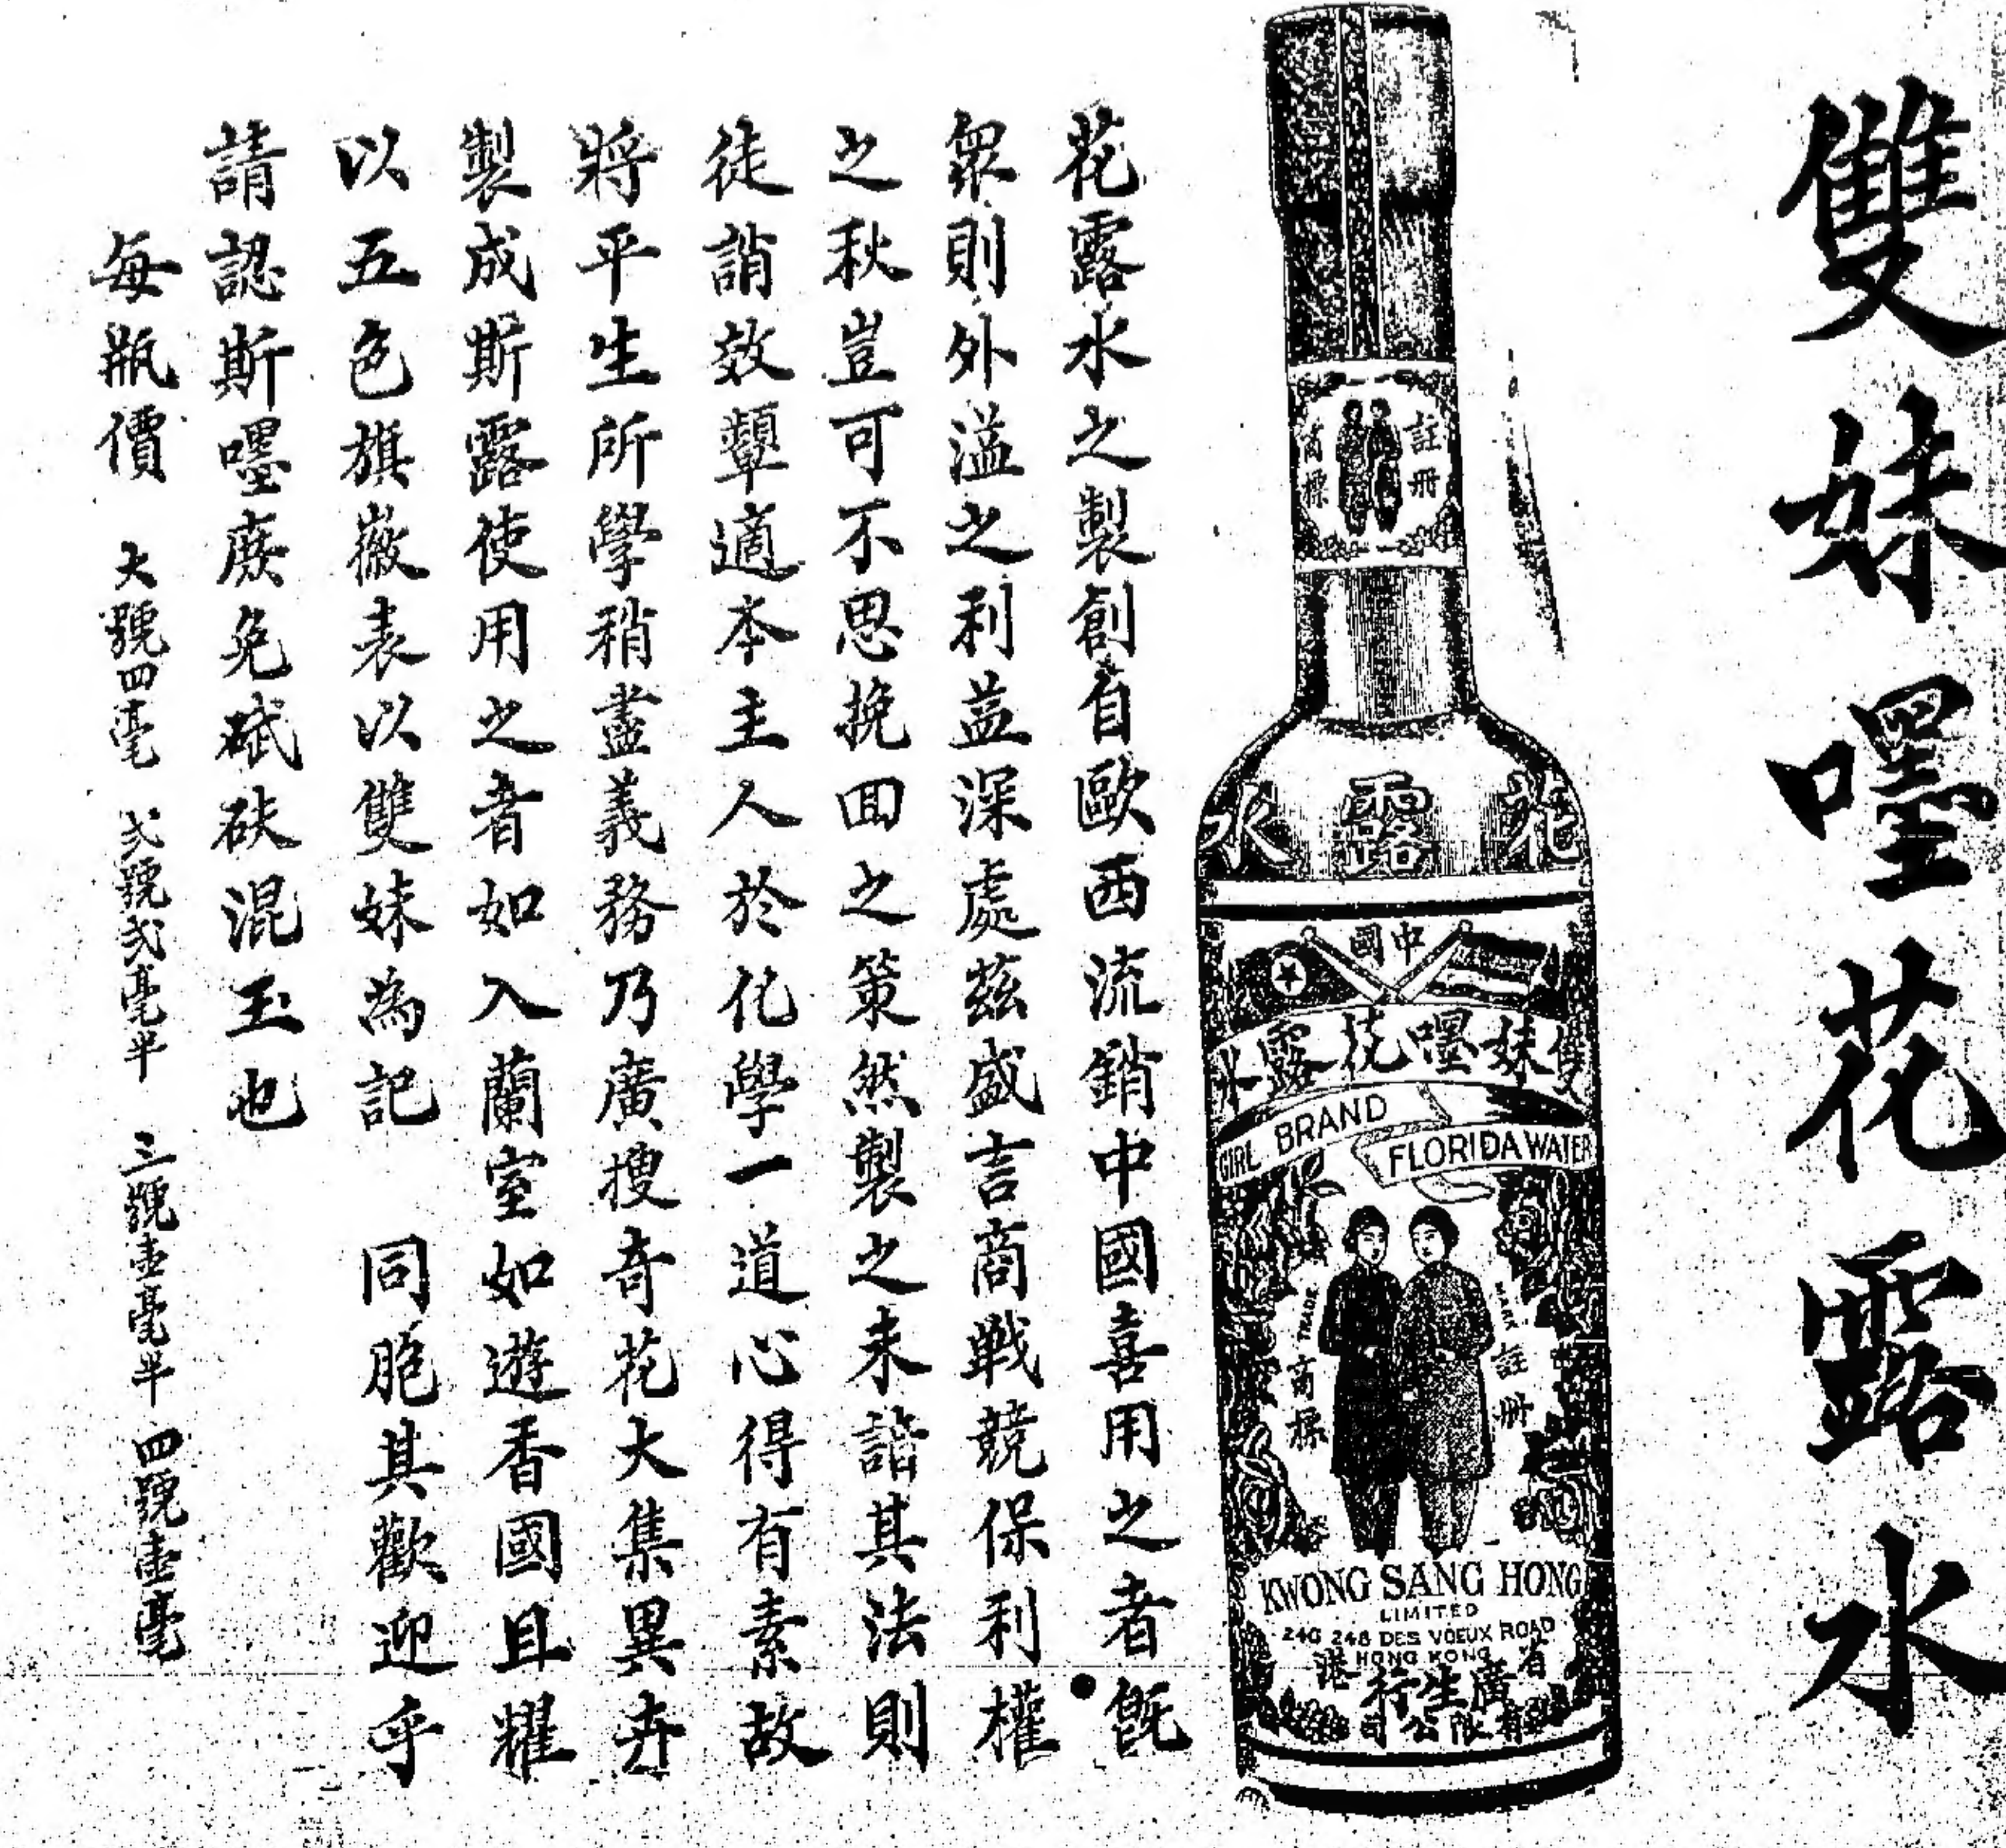 雙妹嚜花露水
註冊
商標
花露水
中國
雙妹嚜花露水
GIRL BRAND
FLORIDA WATER
TRADE MARK
註冊
商標
KWONG SANG HONG
LIMITED
246 248 DES VOEUX ROAD
HONG KONG
香港
廣生行
有限公司
花露水之製創自歐西流銷中國喜用之者既
眾則外溢之利益深處茲盛言商戰競保利權
之秋豈可不思挽回之策然製之未諳其法則
徒誚效顰適本主人於化學一道心得有素故
將平生所學稍盡義務乃廣搜奇花大集異卉
製成斯露使用之者如入蘭室如遊香國且耀
以五色旗徽表以雙妹為記 同胞其歡迎乎
請認斯嚜庶免碔砆混玉也
每瓶價 大號四毫 弍號弍毫半 三號壹毫半 四號壹毫